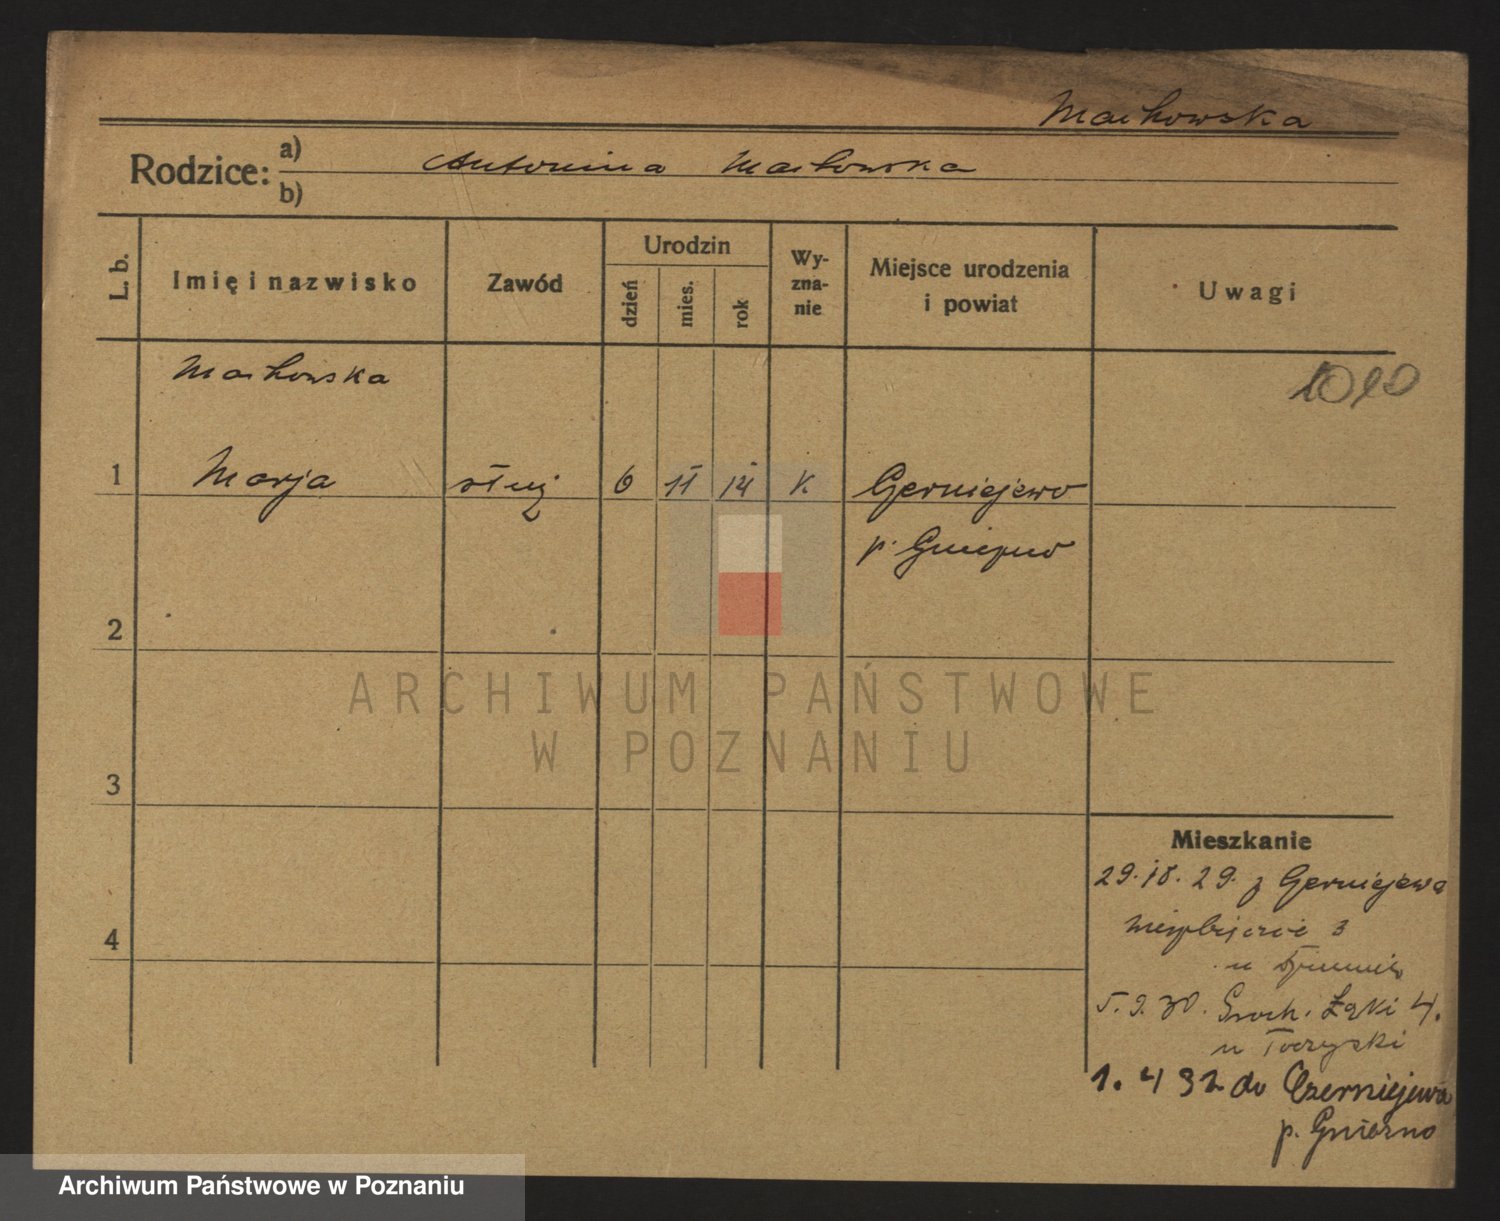 Markowska
Rodzice: a) Antonina Markowska
b)
L. b.
Imię i nazwisko
Zawód
Urodzin
dzień
mies.
rok
Wy-
zna-
nie
Miejsce urodzenia
i powiat
Uwagi
Markowska
1 Marja służ 6 11 14 K Gerniejewo
p. Gniezno
2
3
4
Mieszkanie
29. 18. 29. z Gerniejewa
3
u
5. 9. 30. Groch. Łąki 4.
u
1. 4 32 do Czerniejewa
p. Gniezno
ARCHIWUM PAŃSTWOWE
W POZNANIU
Archiwum Państwowe w Poznaniu